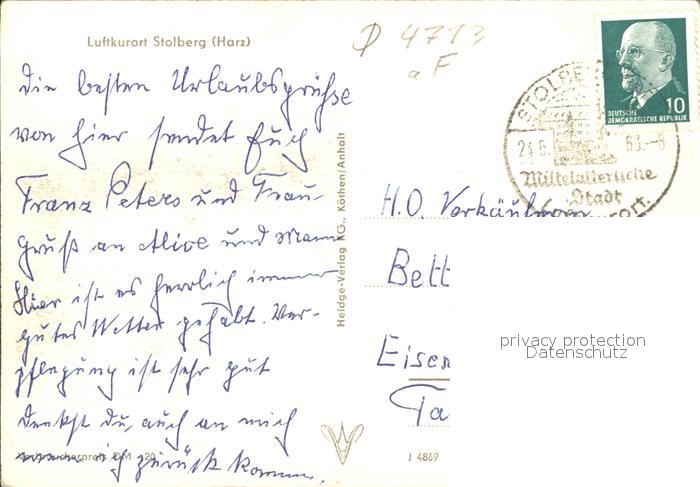 Luftkurort Stolberg (Harz)
D 4713
a F
die besten Urlaubsgrüsse
von hier sendet Euch
Franz Peters und Frau
Gruß an Alice und Mann
Hier ist es herrlich immer
gutes Wetter gehabt. Ver-
pflegung ist sehr gut
Denkst du, auch an mich
wenn ich zurück komme.
Verbraucherpreis DM -,20
Heldge-Verlag KG., Köthen/Anhalt
J 4869
DEUTSCHE
DEMOKRATISCHE REPUBLIK
10
STOLBERG
24.6. 63.-8
Mittelalterliche
Stadt
H.O. Verkäuferin
Bett
Eisen
Ta
privacy protection
Datenschutz